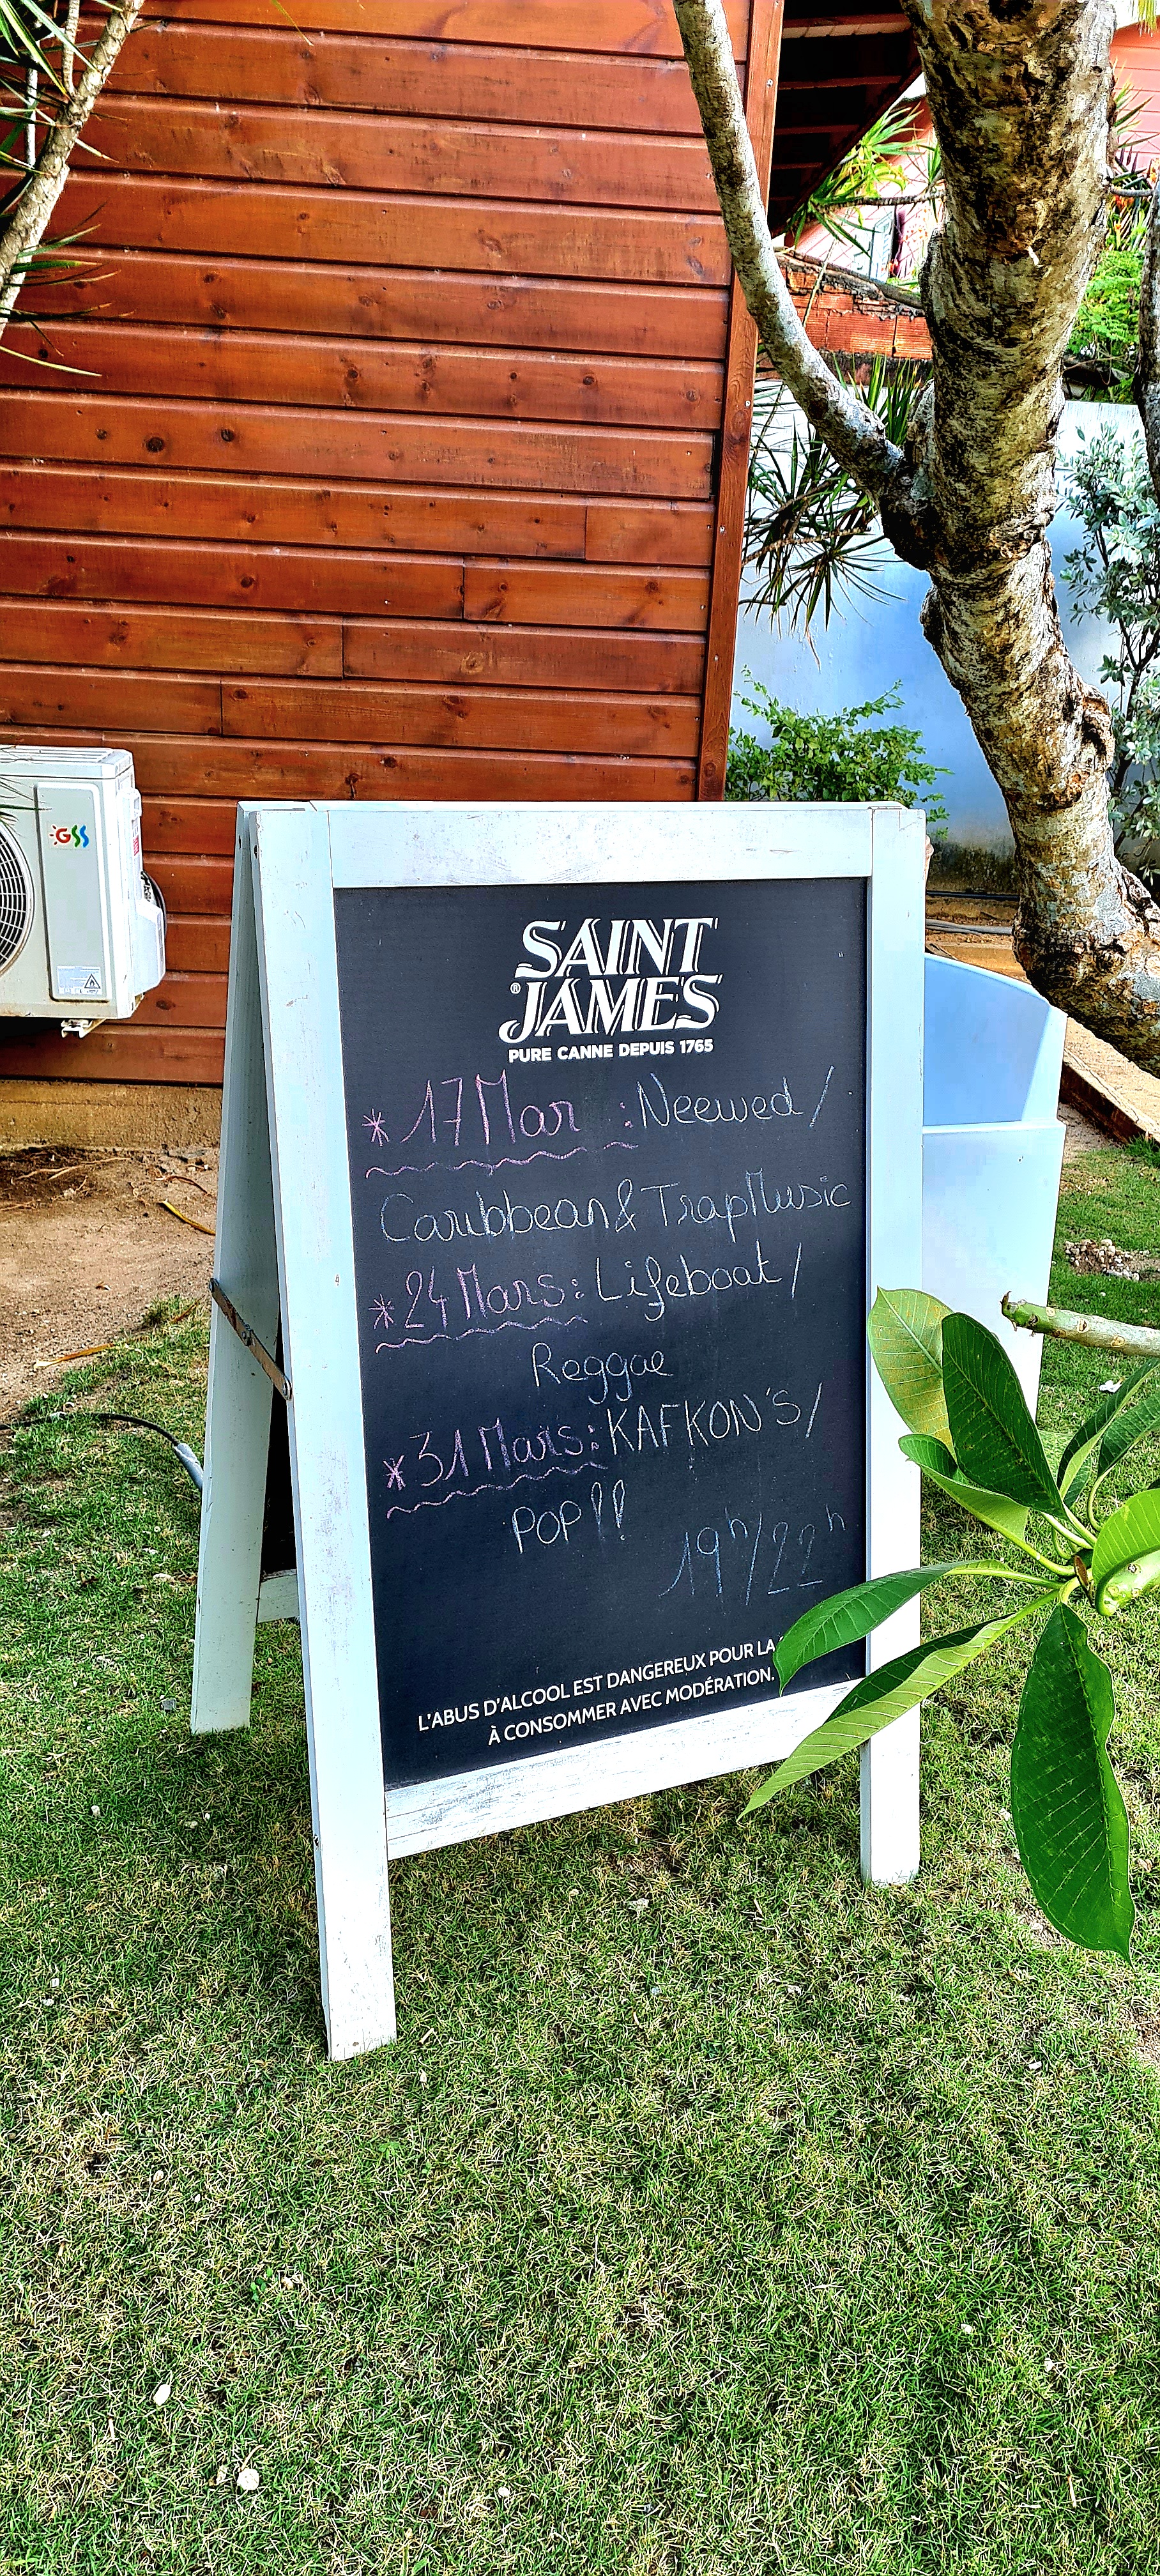 GSS
SAINT
® JAMES
PURE CANNE DEPUIS 1765
* 17 Mar : Neewed /
Caribbean & Trap Music
* 24 Mars : Lifeboat /
Reggae
* 31 Mars : KAFKON'S /
POP !!
19h/22h
L'ABUS D'ALCOOL EST DANGEREUX POUR LA
À CONSOMMER AVEC MODÉRATION.